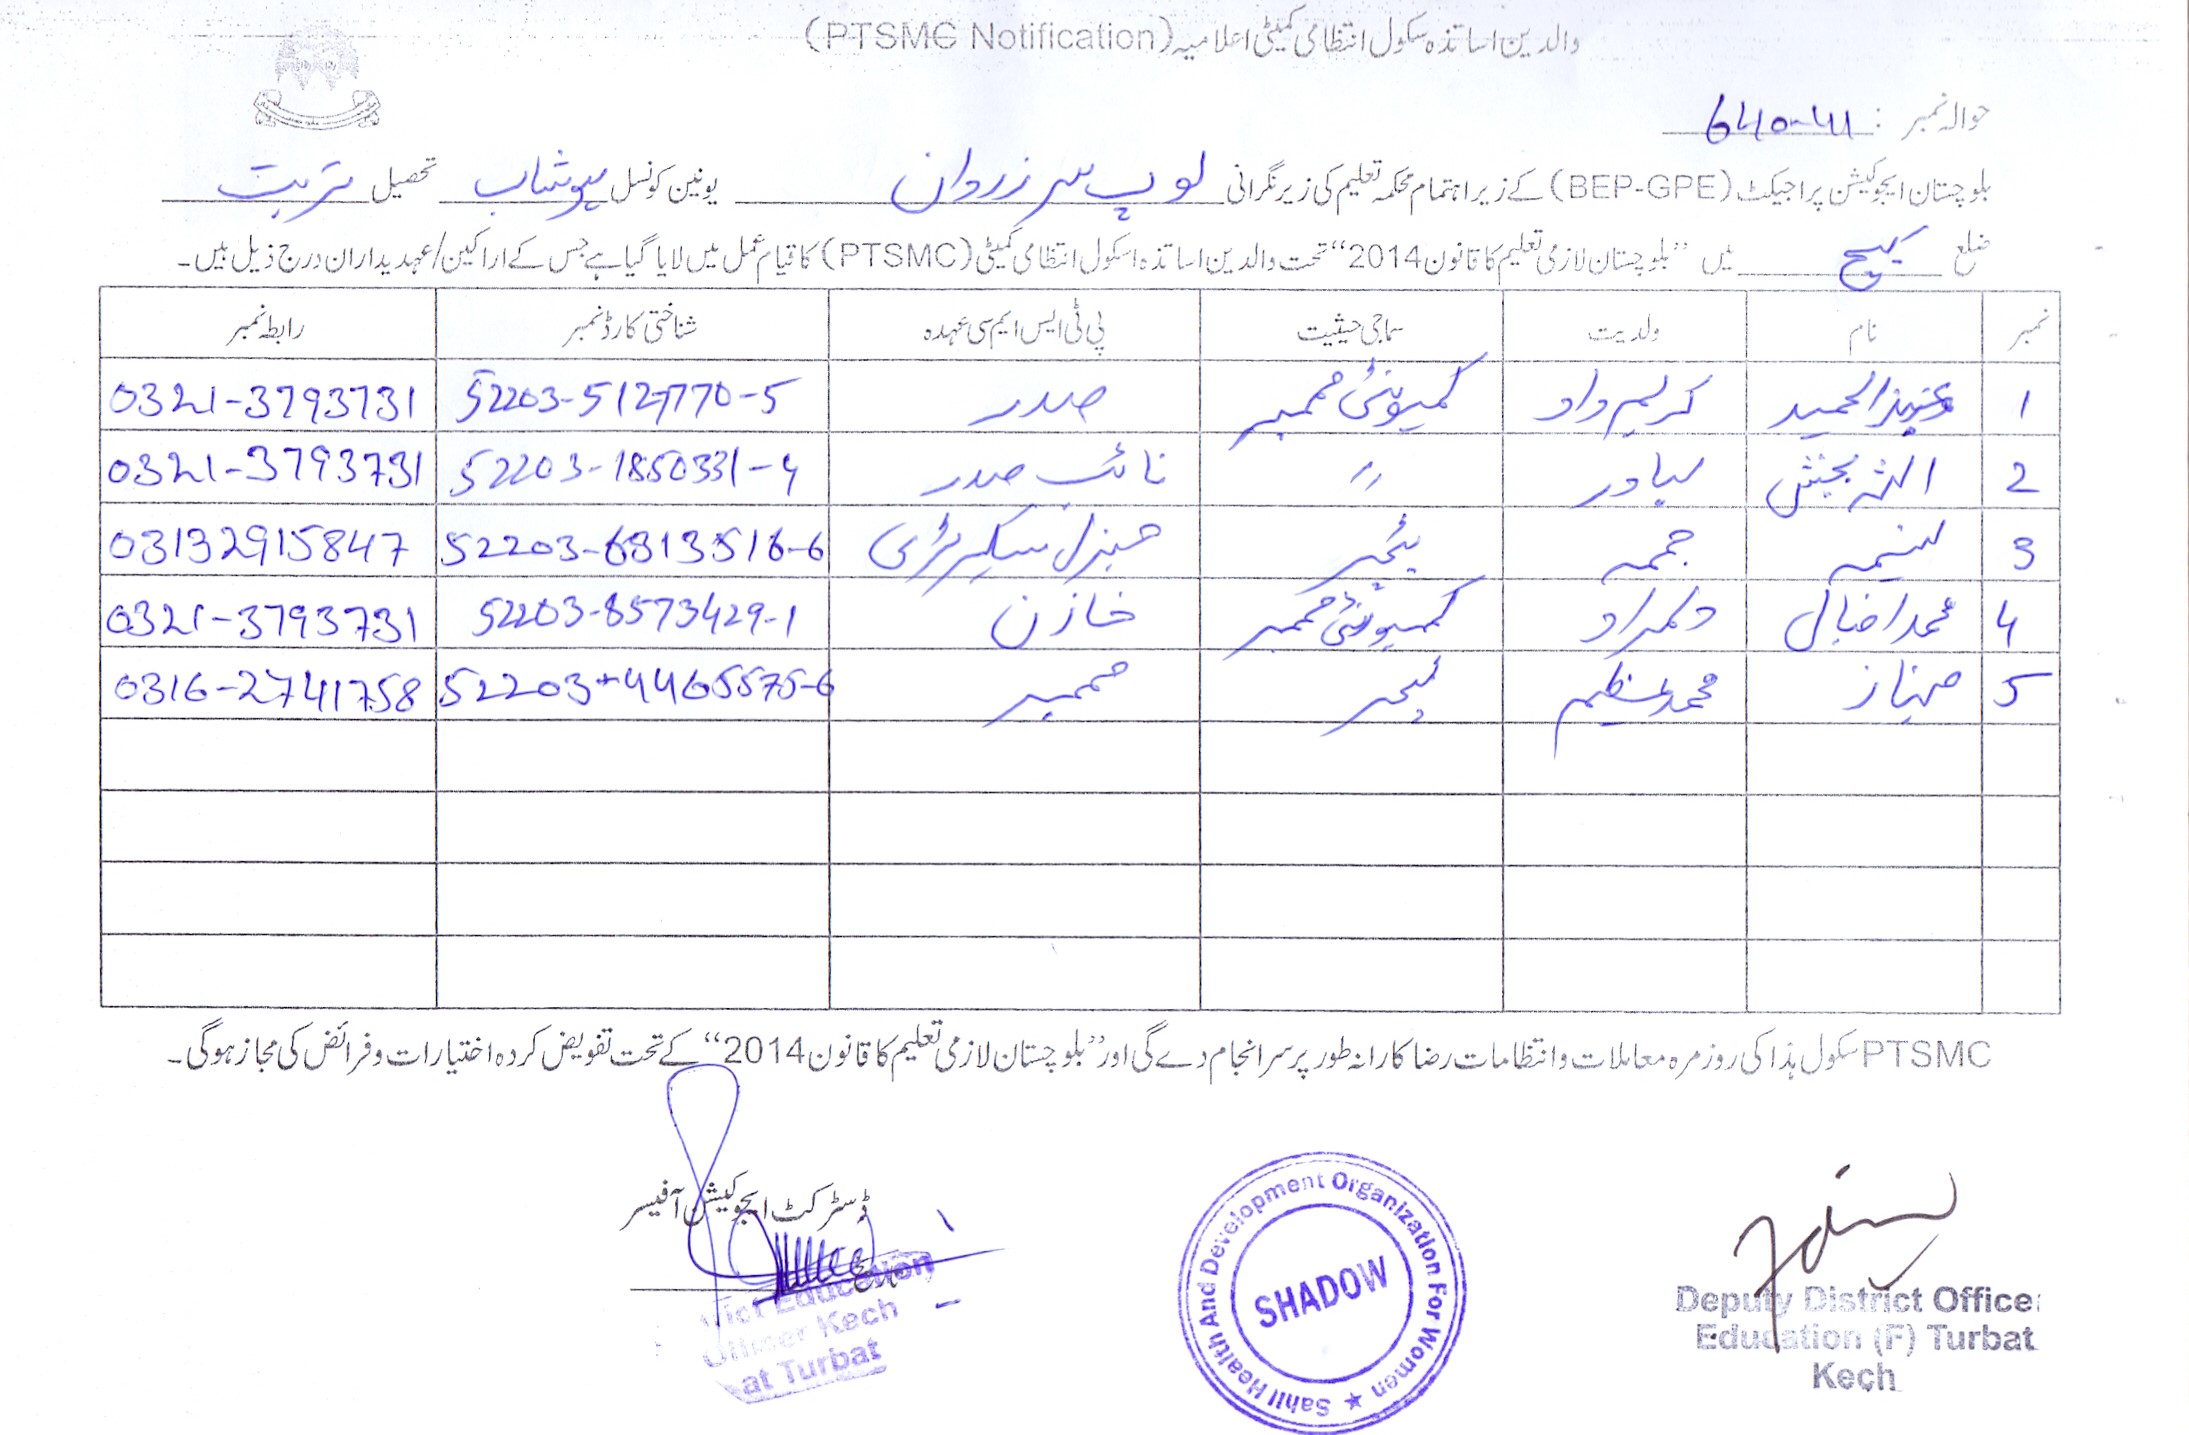 والدین اساتذہ سکول انتظامی کمیٹی اعلامیہ (PTSMC Notification)
حوالہ نمبر : 640-41
بلوچستان ایجوکیشن پراجیکٹ (BEP-GPE) کے زیر اہتمام محکمہ تعلیم کی زیر نگرانی لوپ سر زردان یونین کونسل ہوشاب تحصیل تربت
ضلع کیچ میں ”بلوچستان لازمی تعلیم کا قانون 2014“ تحت والدین اساتذہ اسکول انتظامی کمیٹی (PTSMC) کا قیام عمل میں لایا گیا ہے جس کے اراکین/عہدیداران درج ذیل ہیں۔
نمبر نام ولدیت سماجی حیثیت پی ٹی ایس ایم سی عہدہ شناختی کارڈ نمبر رابطہ نمبر
1 عزیز الحمید کریم داد کمیونٹی ممبر صدر 0321-3793731
2 اللہ بخش " نائب صدر 52203-1850331-4 0321-3793731
3 نسیمہ جمعہ ٹیچر جنرل سیکریٹری 52203-6313516-6 03132915847
4 محمد اقبال دلمراد کمیونٹی ممبر خازن 52203-8573429-1 0321-3793731
5 مہناز محمد عظیم ٹیچر ممبر 52203-4465575-6 0316-2741758
PTSMC سکول ہذا کی روز مرہ معاملات و انتظامات رضا کارانہ طور پر سر انجام دے گی اور ”بلوچستان لازمی تعلیم کا قانون 2014“ کے تحت تفویض کردہ اختیارات و فرائض کی مجاز ہوگی۔
ڈسٹرکٹ ایجوکیشن آفیسر
تاریخ
Education
Officer Kech
at Turbat
Sahil Health And Development Organization For Women
SHADOW
Deputy District Office
Education (F) Turbat
Kech